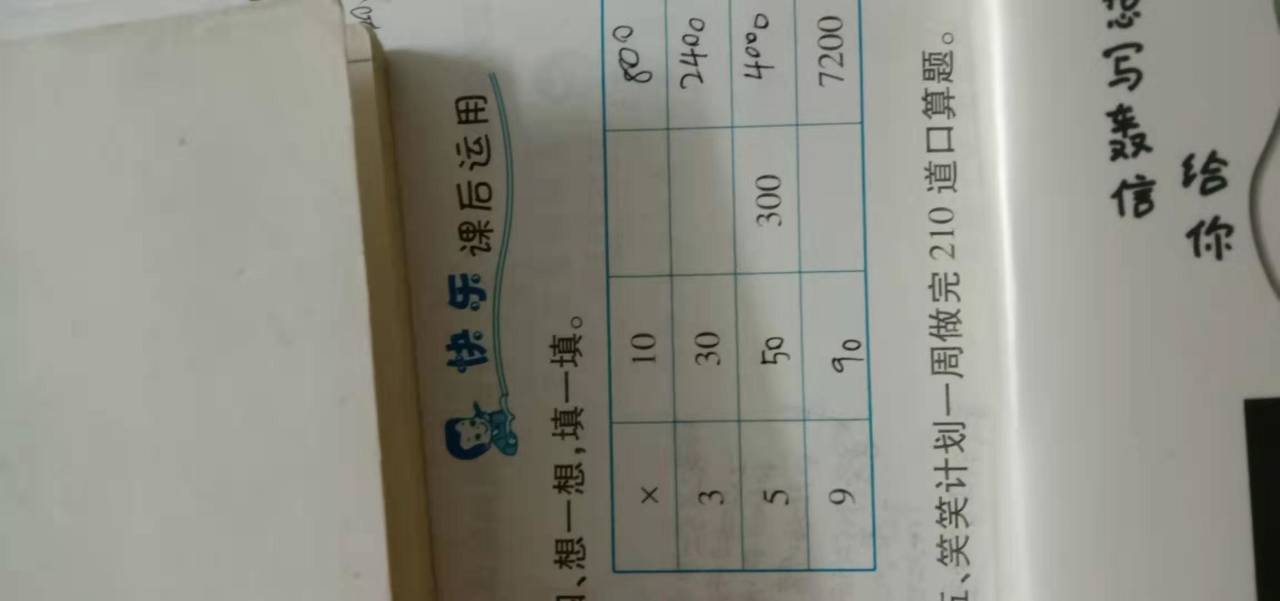 快乐课后运用
、想一想,填一填。
× 10 800
3 30 2400
5 50 300 4000
9 90 7200
、笑笑计划一周做完 210 道口算题。
信 写
给
你